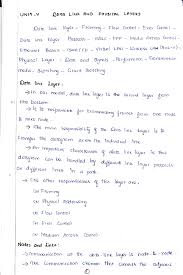 UNIT-V DATA LINK AND PHYSICAL LAYERS
Data link layer - Framing - Flow control - Error control -
Data link layer Protocols - HDLC - PPP - Media Access Control -
Ethernet Basics - - Virtual LAN - Wireless LAN
Physical Layer: Data and Signals - Performance - Transmission
media - Switching - Circuit Switching
Data link layer:
→ In OSI model, data link layer is the second layer from
the bottom.
→ It is responsible for transmitting frames from one node
to next node.
→ The main responsibility of the data link layer is to
transfer the datagram across the individual link.
→ An important characteristic of data link layer is that
datagram can be handled by different link layer protocols
on different links in a path.
→ The other responsibilities of this layer are
(i) Framing
(ii) Physical Addressing
(iii) Flow Control
(iv) Error Control
(v) Medium Access Control
Nodes and links:
→ Communication at the data link layer is node to node
→